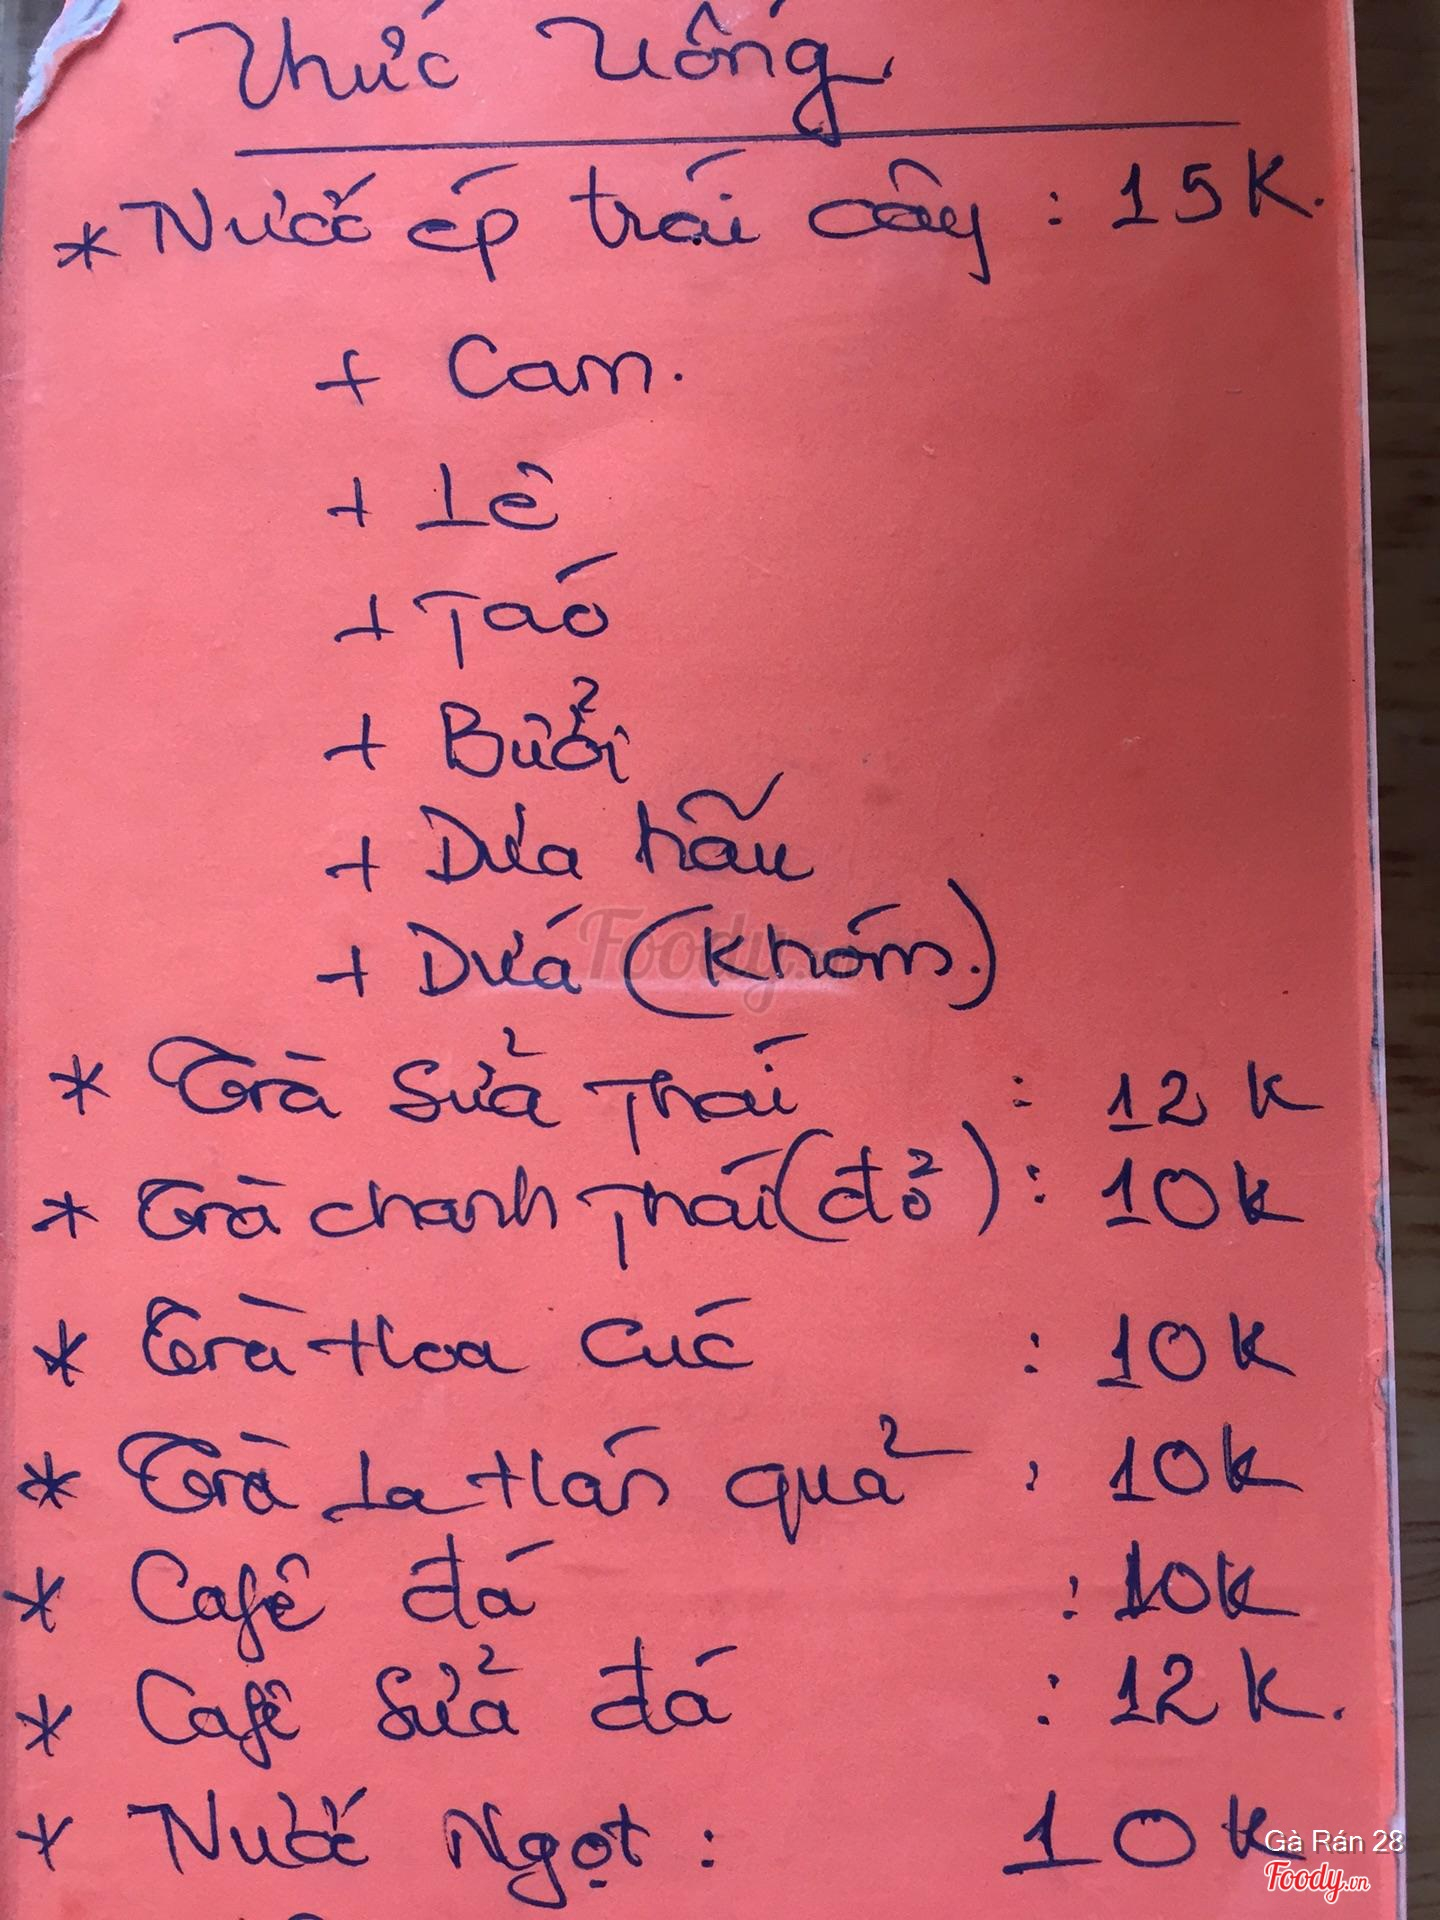 Thức Uống
* Nước ép trái cây : 15K.
+ Cam.
+ Lê
+ Táo
+ Bưởi
+ Dưa hấu
+ Dứa (Khóm.)
* Trà Sửa Thái : 12K
* Trà chanh Thái (đỏ) : 10K
* Trà Hoa Cúc : 10K
* Trà La Hán quả : 10K
* Cafê đá : 10K
* Cafê Sửa đá : 12K.
* Nước Ngọt : 10K
Foody.vn
Gà Rán 28
Foody.vn